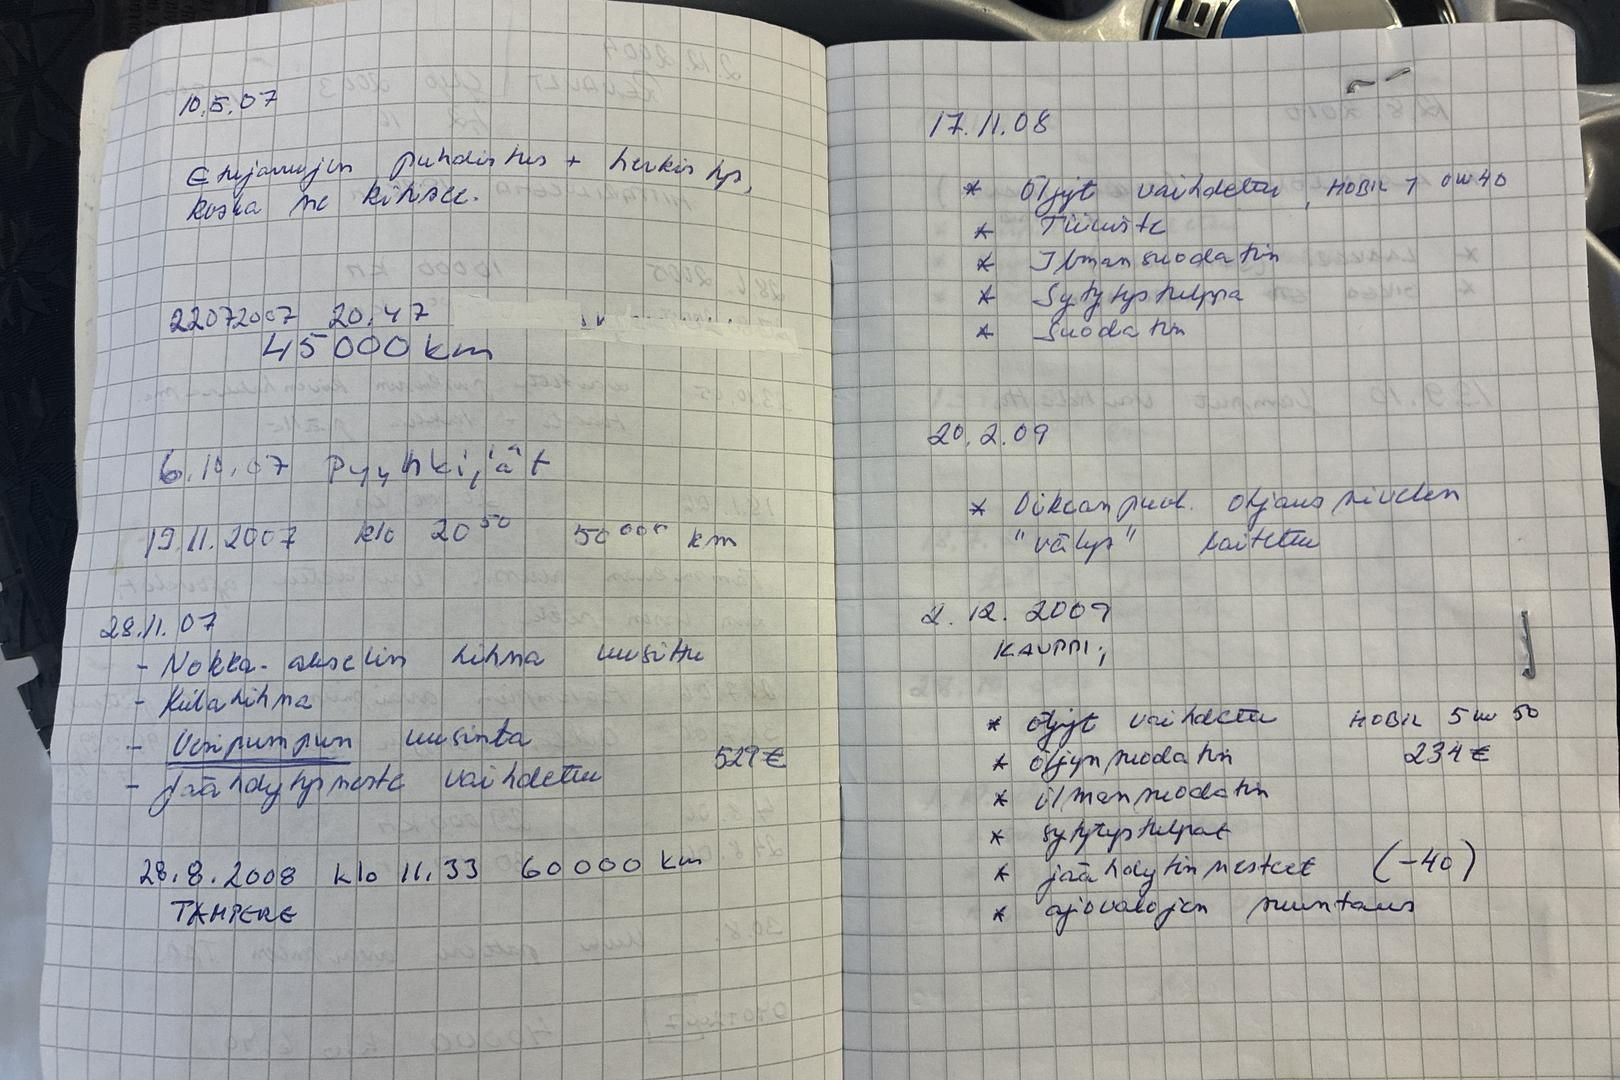 10.5.07
Etujarrujen puhdistus + herkistys,
koska ne kitisee.
22072007 20.47
45000 km
6.10.07 Pyyhkijät
19.11.2007 klo 20⁵⁰ 50⁰⁰⁰ km
28.11.07
- Nokka-akselin hihna uusittu
- Kiilahihna
- Vesipumpun uusinta
529 €
- Jäähdytysneste vaihdettu
28.8.2008 klo 11.33 60000 km
TAMPERE
17.11.08
* Öljyt vaihdettu, MOBIL 1 0W40
* Tiiviste
* Ilmansuodatin
* Sytytystulppa
* Suodatin
20.2.09
* Oikean puol. ohjausnivelen
"välys" laitettu
2.12.2009
KAUPPI;
* öljyt vaihdettu MOBIL 5W50
* öljynsuodatin 234 €
* ilmansuodatin
* sytytystulpat
* jäähdytinnesteet (-40)
* ajovalojen suuntaus